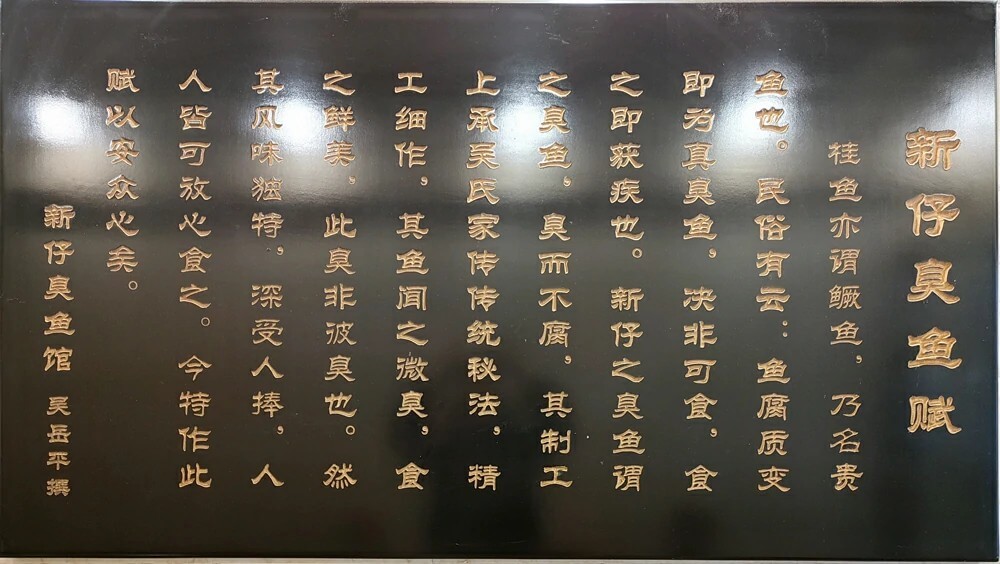 新仔臭鱼赋
桂鱼亦谓鳜鱼，乃名贵
鱼也。民俗有云：鱼腐质变
即为真臭鱼，决非可食，食
之即获疾也。新仔之臭鱼谓
之臭鱼，臭而不腐，其制工
上承吴氏家传传统秘法，精
工细作，其鱼闻之微臭，食
之鲜美，此臭非彼臭也。然
其风味独特，深受人捧，人
人皆可放心食之。今特作此
赋以安众心矣。
新仔臭鱼馆 吴岳平撰